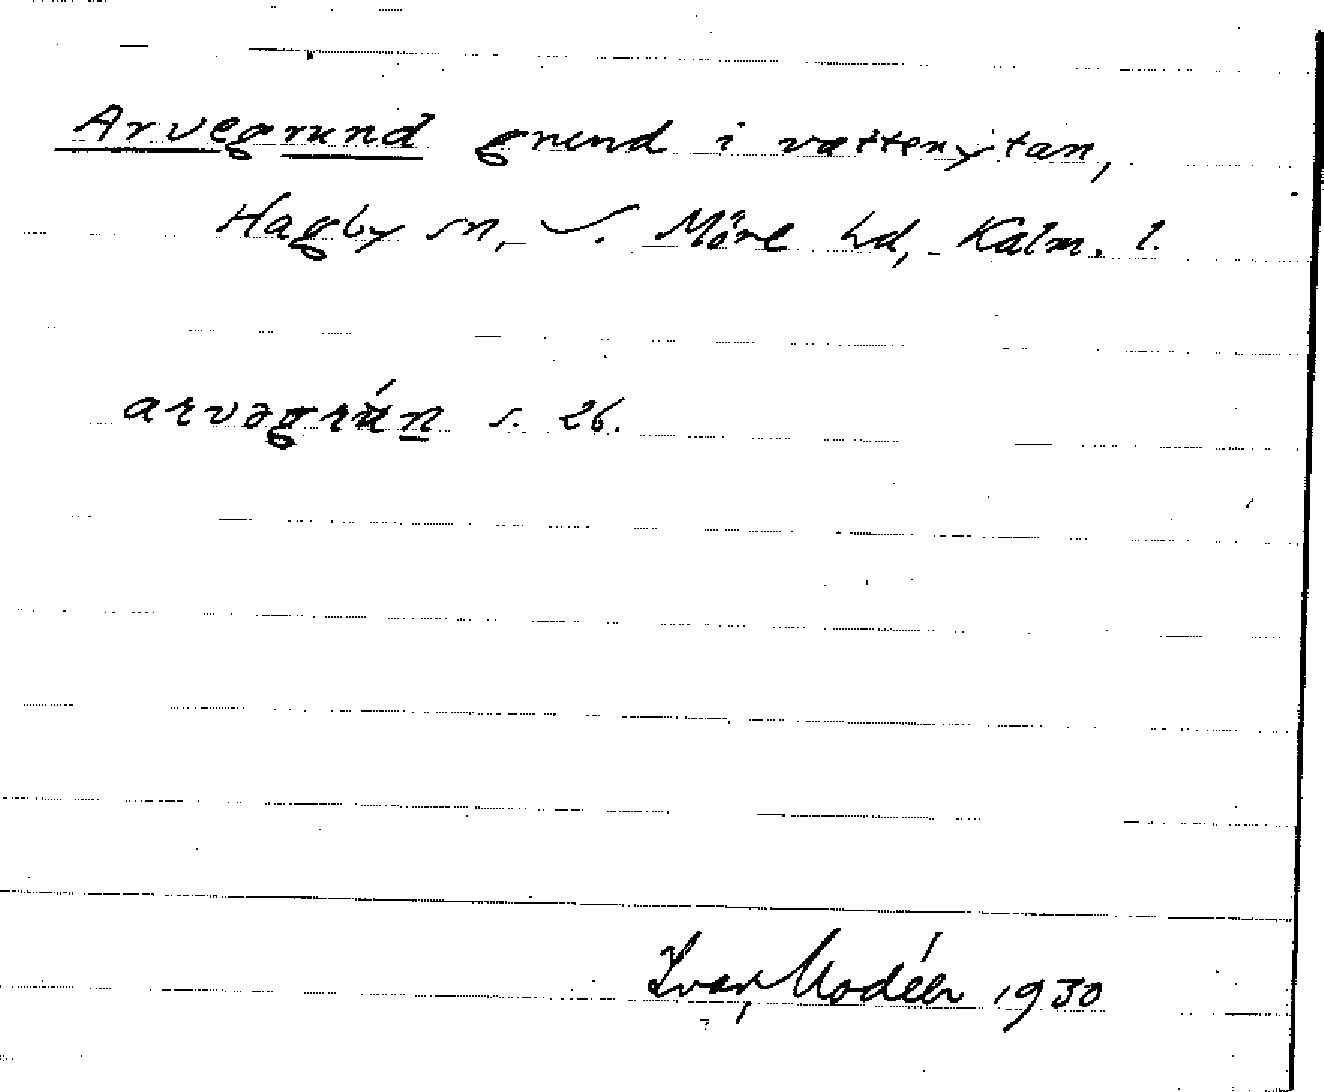 Arvegrund grund i vattenytan,
Hagby sn, S. Möre hd, Kalm. l.
arvəgrún s. 26.
Ivar Modéer 1930